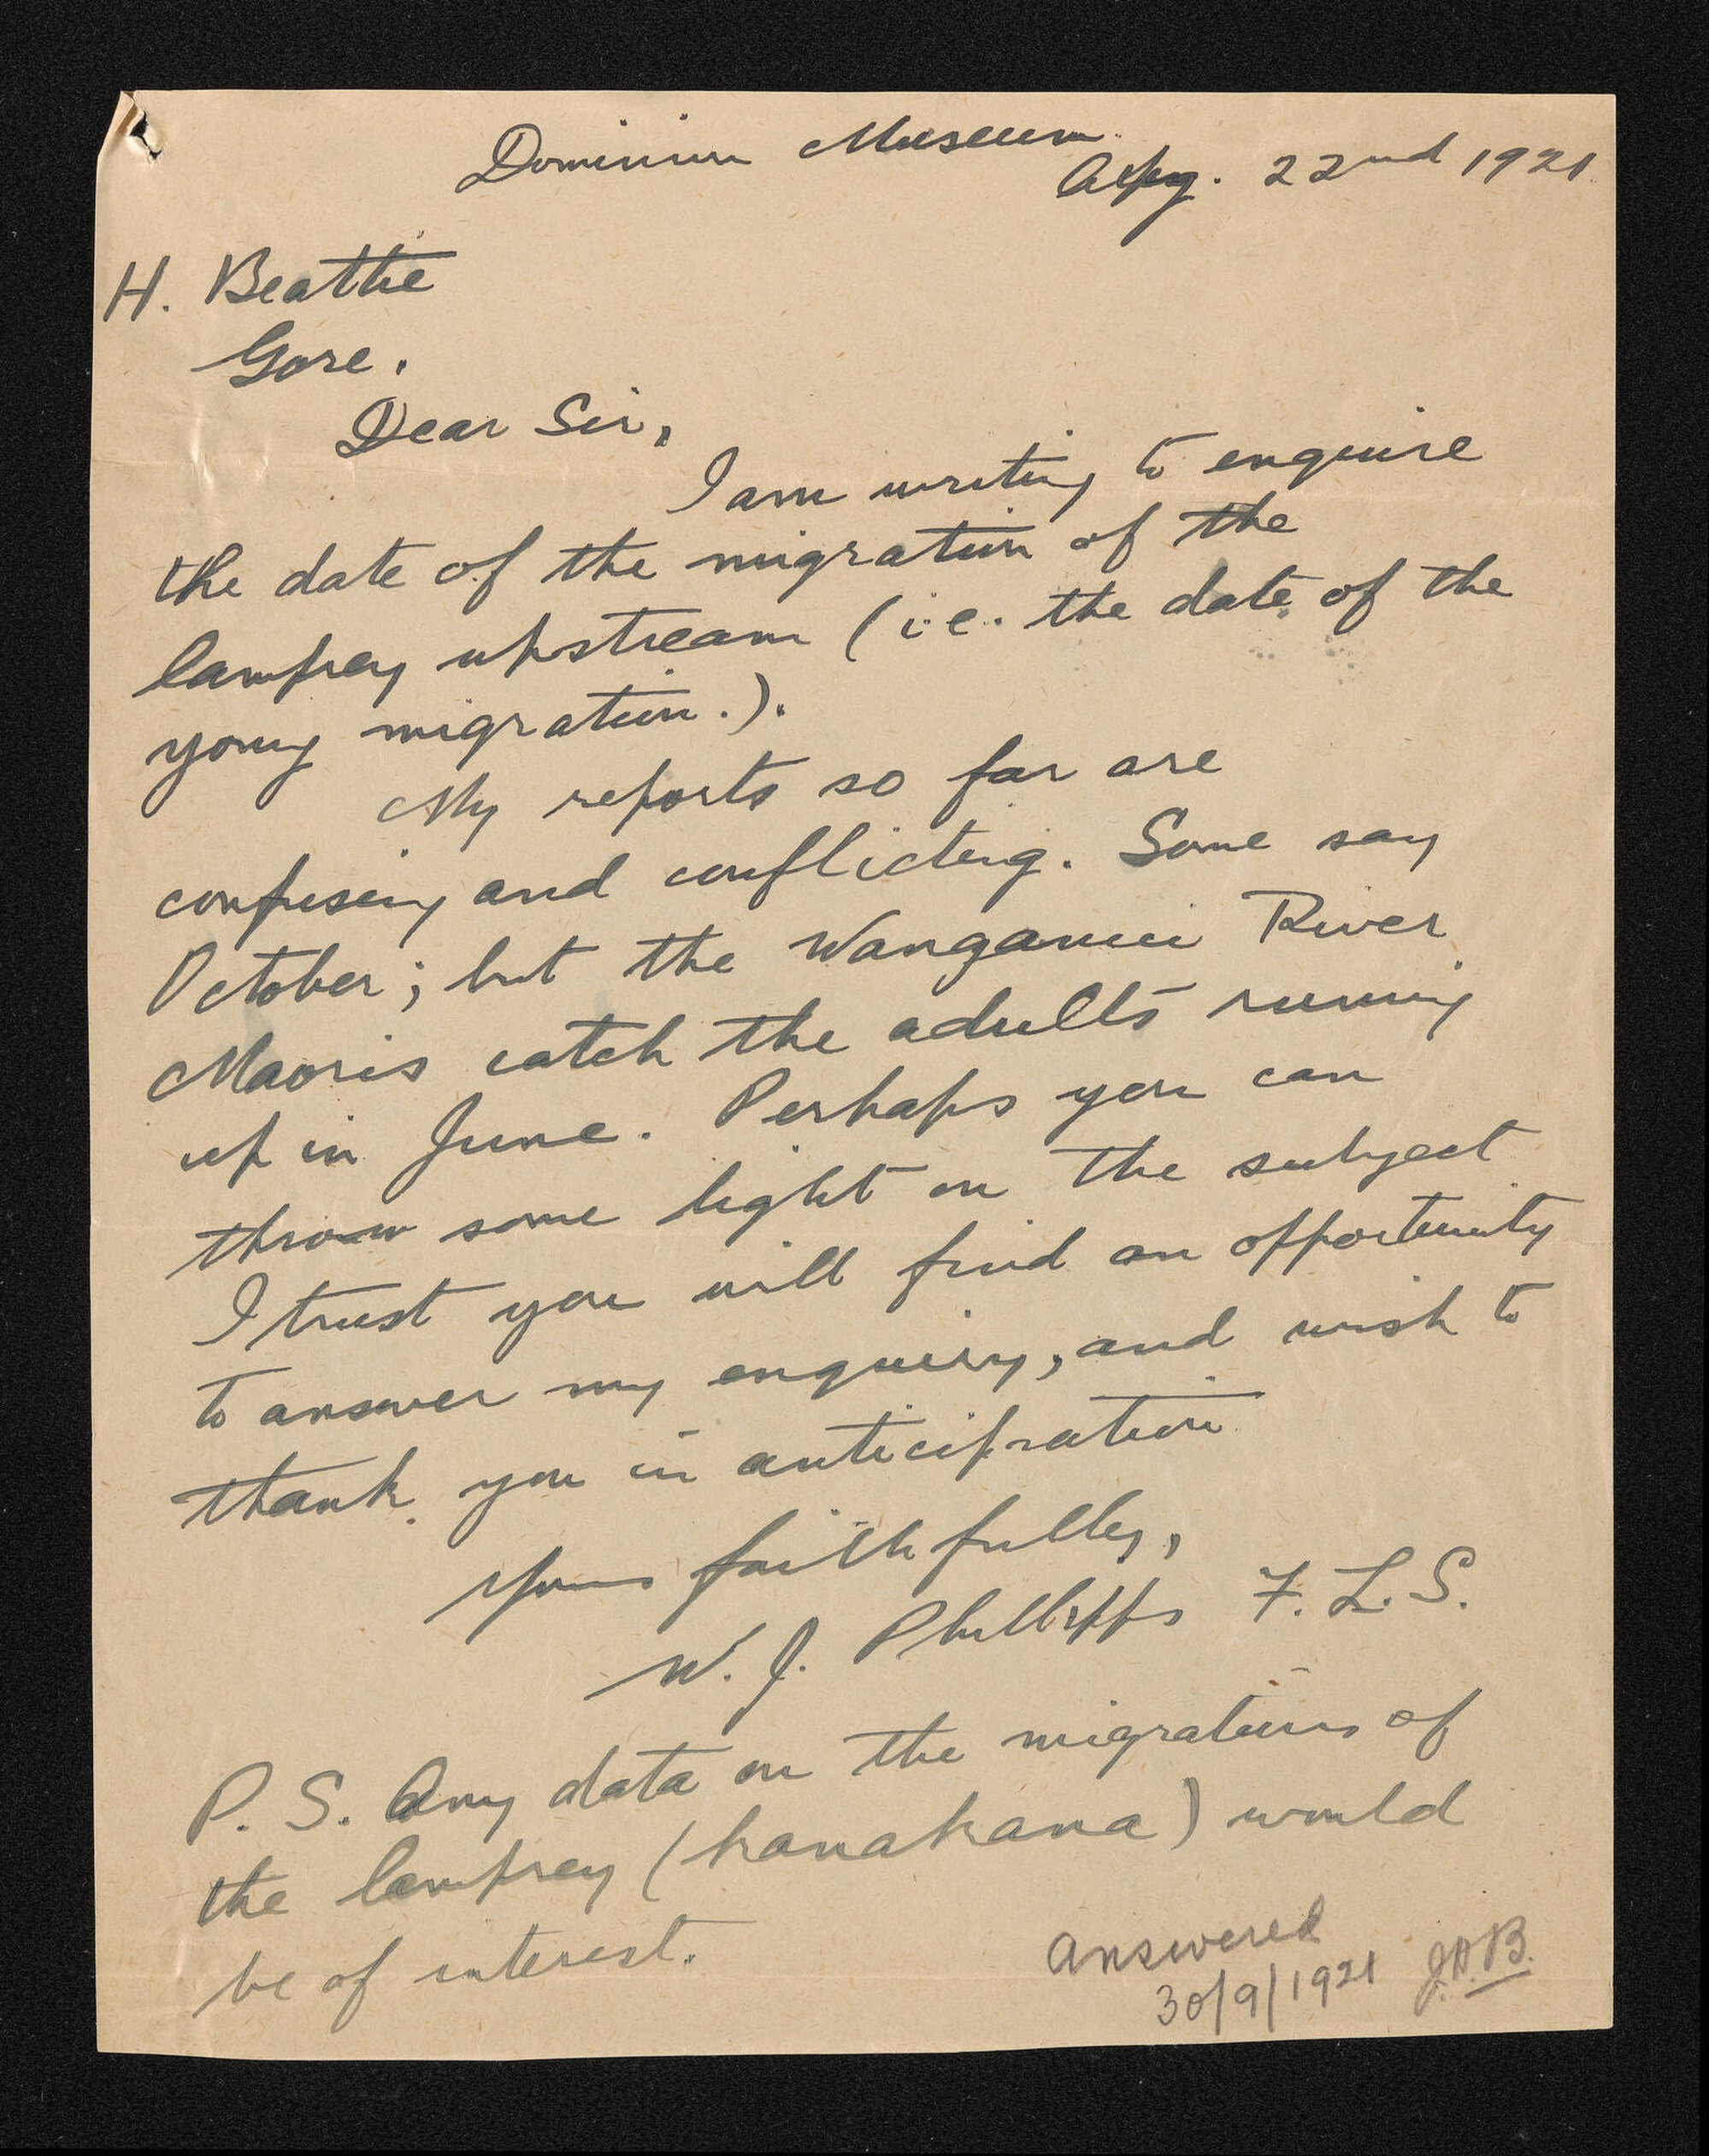 Dominion Museum
Aug. 22nd 1921.
H. Beattie
Gore.
Dear Sir,
I am writing to enquire
the date of the migration of the
lamprey upstream (i.e. the date of the
young migration.).
My reports so far are
confusing and conflicting. Some say
October; but the Wanganui River
Maoris catch the adults running
up in June. Perhaps you can
throw some light on the subject
I trust you will find an opportunity
to answer my enquiry, and wish to
thank you in anticipation
Yours faithfully,
W. J. Phillipps F. L. S.
P. S. Any data on the migrations of
the lamprey (kanakana) would
be of interest.
Answered
30/9/1921 J.H.B.